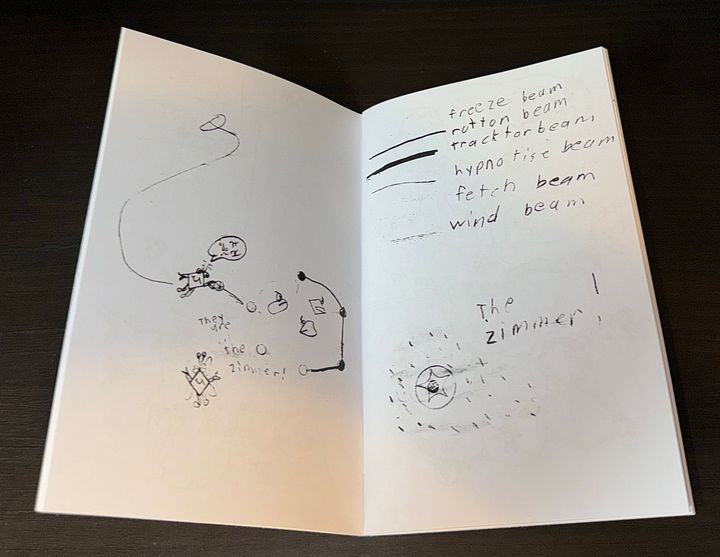 They
are
the
zimmer!
freeze beam
rotton beam
tracktor beam
hypnotise beam
fetch beam
wind beam
The
zimmer!